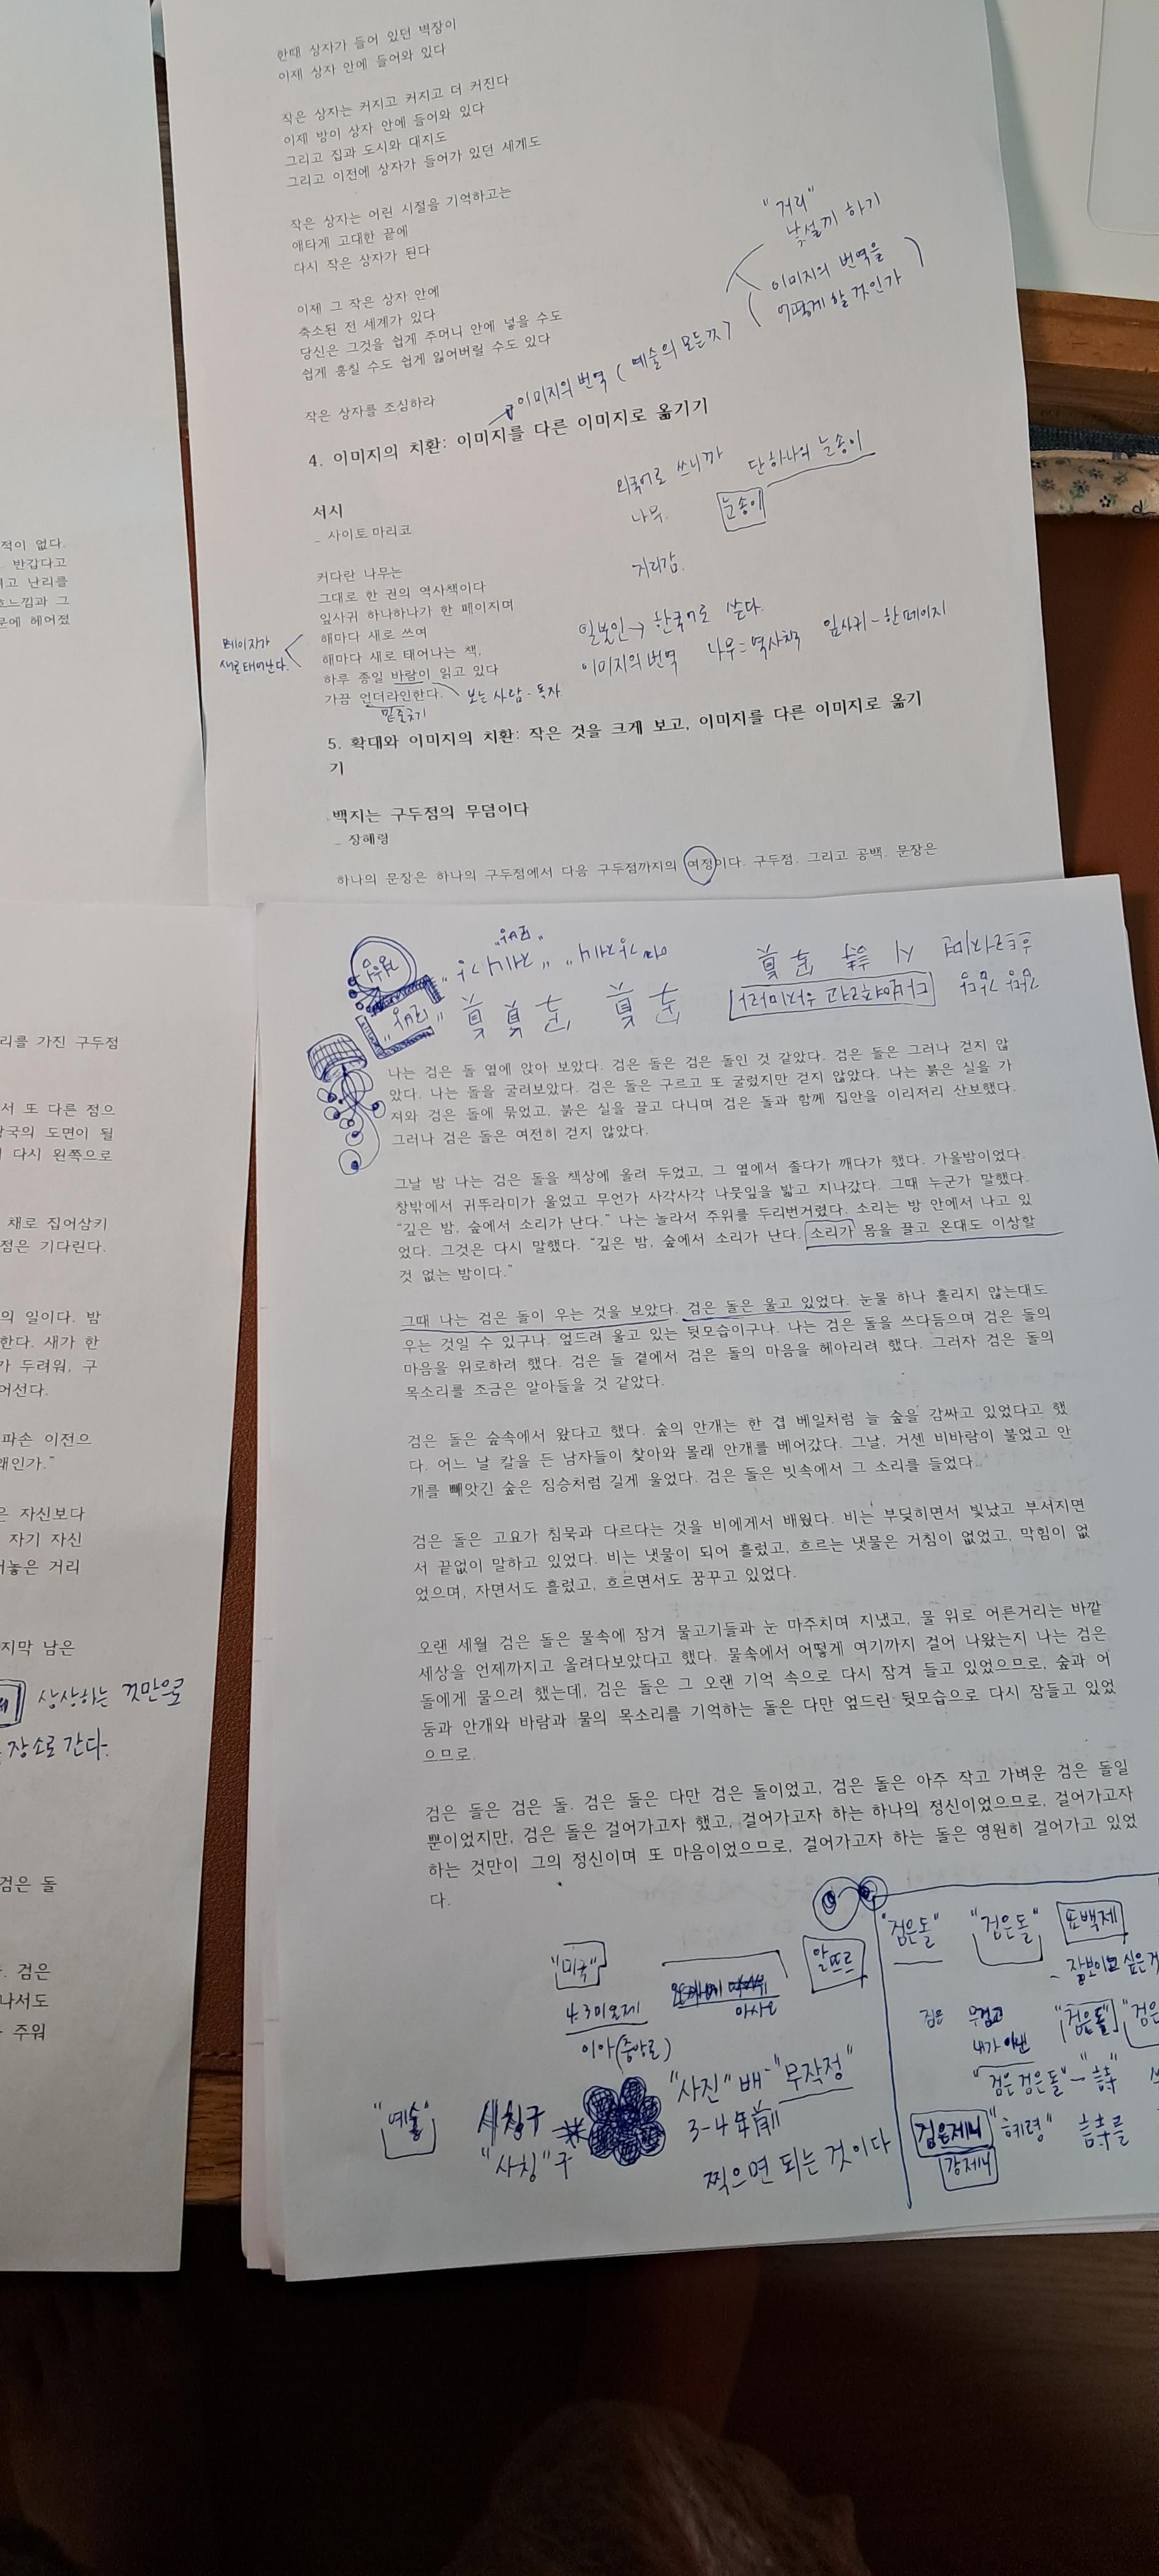 한때 상자가 들어 있던 벽장이
이제 상자 안에 들어와 있다
작은 상자는 커지고 커지고 더 커진다
이제 방이 상자 안에 들어와 있다
그리고 집과 도시와 대지도
그리고 이전에 상자가 들어가 있던 세계도
작은 상자는 어린 시절을 기억하고는
애타게 고대한 끝에
다시 작은 상자가 된다
이제 그 작은 상자 안에
축소된 전 세계가 있다
당신은 그것을 쉽게 주머니 안에 넣을 수도
쉽게 훔칠 수도 쉽게 잃어버릴 수도 있다
작은 상자를 조심하라
"거리"
낯설끼 하기
이미지의 번역을
어떻게 할 것인가
이미지의 번역 (예술의 모든 것)
4. 이미지의 치환: 이미지를 다른 이미지로 옮기기
외국어로 쓰니까 단 하나의 눈송이
나무. 눈송이
거리감.
서시
_ 사이토 마리코
커다란 나무는
그대로 한 권의 역사책이다
잎사귀 하나하나가 한 페이지며
해마다 새로 쓰여
해마다 새로 태어나는 책,
하루 종일 바람이 읽고 있다
가끔 언더라인한다.
페이지가
새로 태어난다.
밑줄긋기
보는 사람 - 독자
일본인 → 한국어로 쓴다.
이미지의 번역 나무=역사책 잎사귀 - 한 페이지
5. 확대와 이미지의 치환: 작은 것을 크게 보고, 이미지를 다른 이미지로 옮기
기
백지는 구두점의 무덤이다
_ 장혜령
하나의 문장은 하나의 구두점에서 다음 구두점까지의 여정이다. 구두점. 그리고 공백. 문장은
적이 없다.
반갑다고
고 난리를
흐느낌과 그
문에 헤어졌
리를 가진 구두점
서 또 다른 점으
왕국의 도면이 될
다시 왼쪽으로
채로 집어삼키
점은 기다린다.
의 일이다. 밤
한다. 새가 한
가 두려워, 구
어선다.
파손 이전으
왜인가."
은 자신보다
자기 자신
거놓은 거리
지막 남은
상상하는 것만으로
장소로 간다.
검은 돌
. 검은
나서도
주워
나는 검은 돌 옆에 앉아 보았다. 검은 돌은 검은 돌인 것 같았다. 검은 돌은 그러나 걷지 않
았다. 나는 돌을 굴려보았다. 검은 돌은 구르고 또 굴렀지만 걷지 않았다. 나는 붉은 실을 가
져와 검은 돌에 묶었고, 붉은 실을 끌고 다니며 검은 돌과 함께 집안을 이리저리 산보했다.
그러나 검은 돌은 여전히 걷지 않았다.
그날 밤 나는 검은 돌을 책상에 올려 두었고, 그 옆에서 졸다가 깨다가 했다. 가을밤이었다.
창밖에서 귀뚜라미가 울었고 무언가 사각사각 나뭇잎을 밟고 지나갔다. 그때 누군가 말했다.
"깊은 밤, 숲에서 소리가 난다." 나는 놀라서 주위를 두리번거렸다. 소리는 방 안에서 나고 있
었다. 그것은 다시 말했다. "깊은 밤, 숲에서 소리가 난다. 소리가 몸을 끌고 온대도 이상할
것 없는 밤이다."
그때 나는 검은 돌이 우는 것을 보았다. 검은 돌은 울고 있었다. 눈물 하나 흘리지 않는대도
우는 것일 수 있구나. 엎드려 울고 있는 뒷모습이구나. 나는 검은 돌을 쓰다듬으며 검은 돌의
마음을 위로하려 했다. 검은 돌 곁에서 검은 돌의 마음을 헤아리려 했다. 그러자 검은 돌의
목소리를 조금은 알아들을 것 같았다.
검은 돌은 숲속에서 왔다고 했다. 숲의 안개는 한 겹 베일처럼 늘 숲을 감싸고 있었다고 했
다. 어느 날 칼을 든 남자들이 찾아와 몰래 안개를 베어갔다. 그날, 거센 비바람이 불었고 안
개를 빼앗긴 숲은 짐승처럼 길게 울었다. 검은 돌은 빗속에서 그 소리를 들었다.
검은 돌은 고요가 침묵과 다르다는 것을 비에게서 배웠다. 비는 부딪히면서 빛났고 부서지면
서 끝없이 말하고 있었다. 비는 냇물이 되어 흘렀고, 흐르는 냇물은 거침이 없었고, 막힘이 없
었으며, 자면서도 흘렀고, 흐르면서도 꿈꾸고 있었다.
오랜 세월 검은 돌은 물속에 잠겨 물고기들과 눈 마주치며 지냈고, 물 위로 어른거리는 바깥
세상을 언제까지고 올려다보았다고 했다. 물속에서 어떻게 여기까지 걸어 나왔는지 나는 검은
돌에게 물으려 했는데, 검은 돌은 그 오랜 기억 속으로 다시 잠겨 들고 있었으므로, 숲과 어
둠과 안개와 바람과 물의 목소리를 기억하는 돌은 다만 엎드린 뒷모습으로 다시 잠들고 있었
으므로.
검은 돌은 검은 돌. 검은 돌은 다만 검은 돌이었고, 검은 돌은 아주 작고 가벼운 검은 돌일
뿐이었지만, 검은 돌은 걸어가고자 했고, 걸어가고자 하는 하나의 정신이었으므로, 걸어가고자
하는 것만이 그의 정신이며 또 마음이었으므로, 걸어가고자 하는 돌은 영원히 걸어가고 있었
다.
"미국"
4.3이오제
이아(중앙로)
알뜨르
"검은돌" "검은돌" 표백제
"검은돌"
내가
"검은 검은돌" - 詩"
검은제니 "혜령" 詩를
강제니
"예술" 새칭구
"사칭"구
"사진" 배 - "무작정"
3-4年前
찍으면 되는 것이다